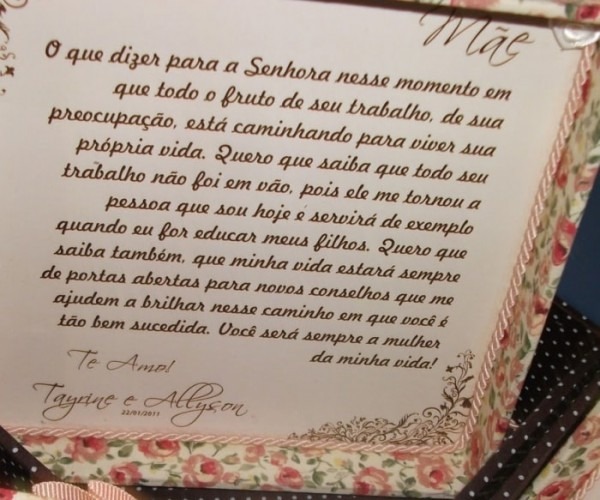 Mãe
O que dizer para a Senhora nesse momento em
que todo o fruto de seu trabalho, de sua
preocupação, está caminhando para viver sua
própria vida. Quero que saiba que todo seu
trabalho não foi em vão, pois ele me tornou a
pessoa que sou hoje é servirá de exemplo
quando eu for educar meus filhos. Quero que
saiba também, que minha vida estará sempre
de portas abertas para novos conselhos que me
ajudem a brilhar nesse caminho em que você é
tão bem sucedida. Você será sempre a mulher
da minha vida!
Te Amo!
Tayrine e Allyson
22/01/2011